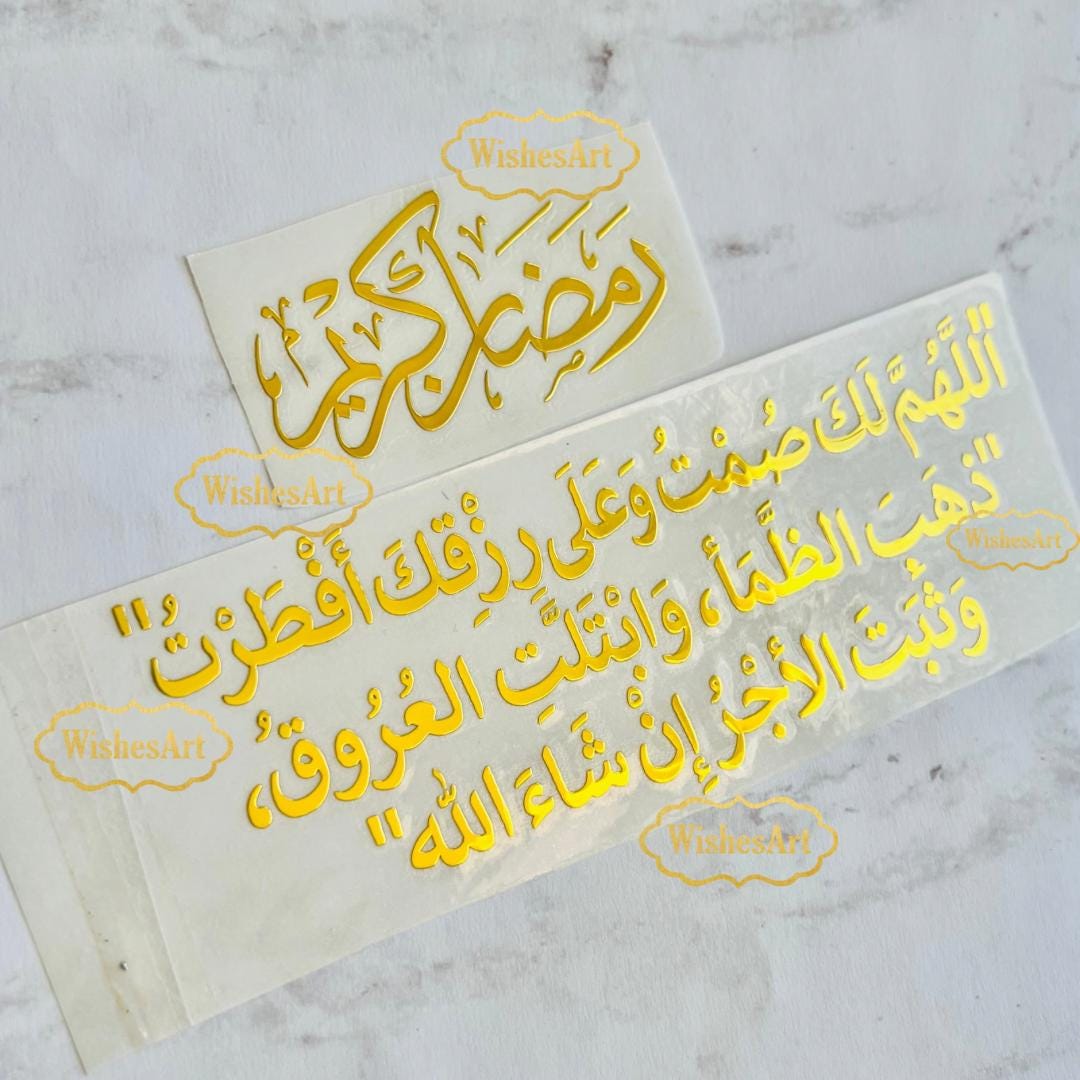 WishesArt
رمضان كريم
"اللَّهُمَّ لَكَ صُمْتُ وَعَلَى رِزْقِكَ أَفْطَرْتُ"
"ذَهَبَ الظَّمَأُ، وَابْتَلَّتِ العُرُوقُ،
وَثَبَتَ الأجْرُ إِنْ شَاءَ اللَّه"
WishesArt
WishesArt
WishesArt
WishesArt